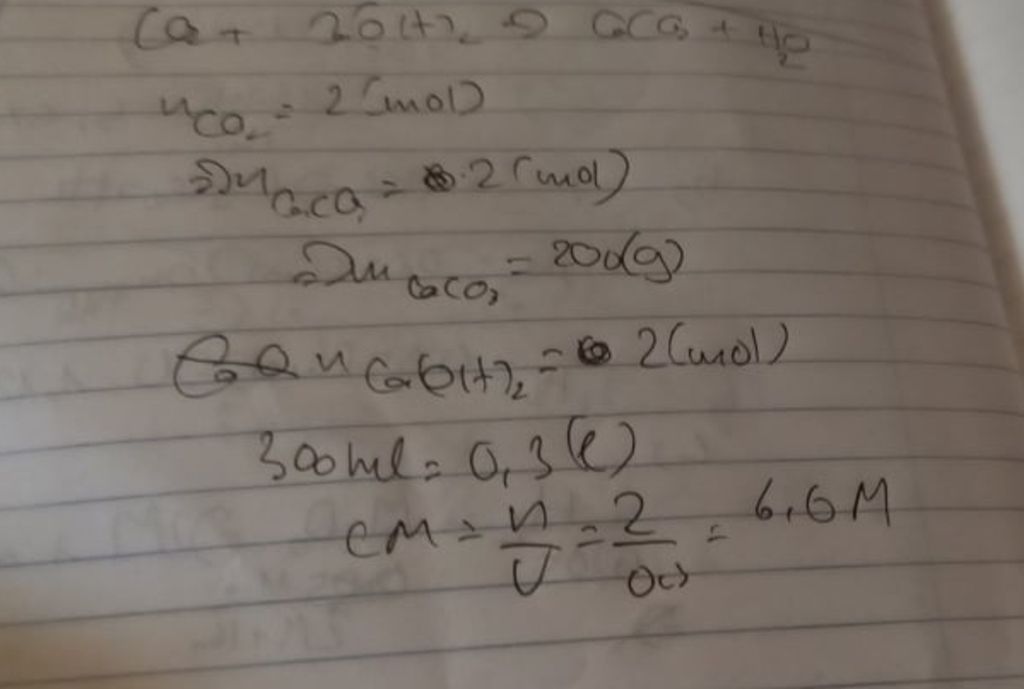 Ca + 2OH)₂ ⇒ CaCO₃ + H₂O
nCO₂ = 2 (mol)
⇒ nCaCO₃ = 2 (mol)
⇒ mCaCO₃ = 200(g)
nCa(OH)₂ = 2 (mol)
300ml = 0,3 (l)
CM = n/V = 2/0,3 = 6,6M